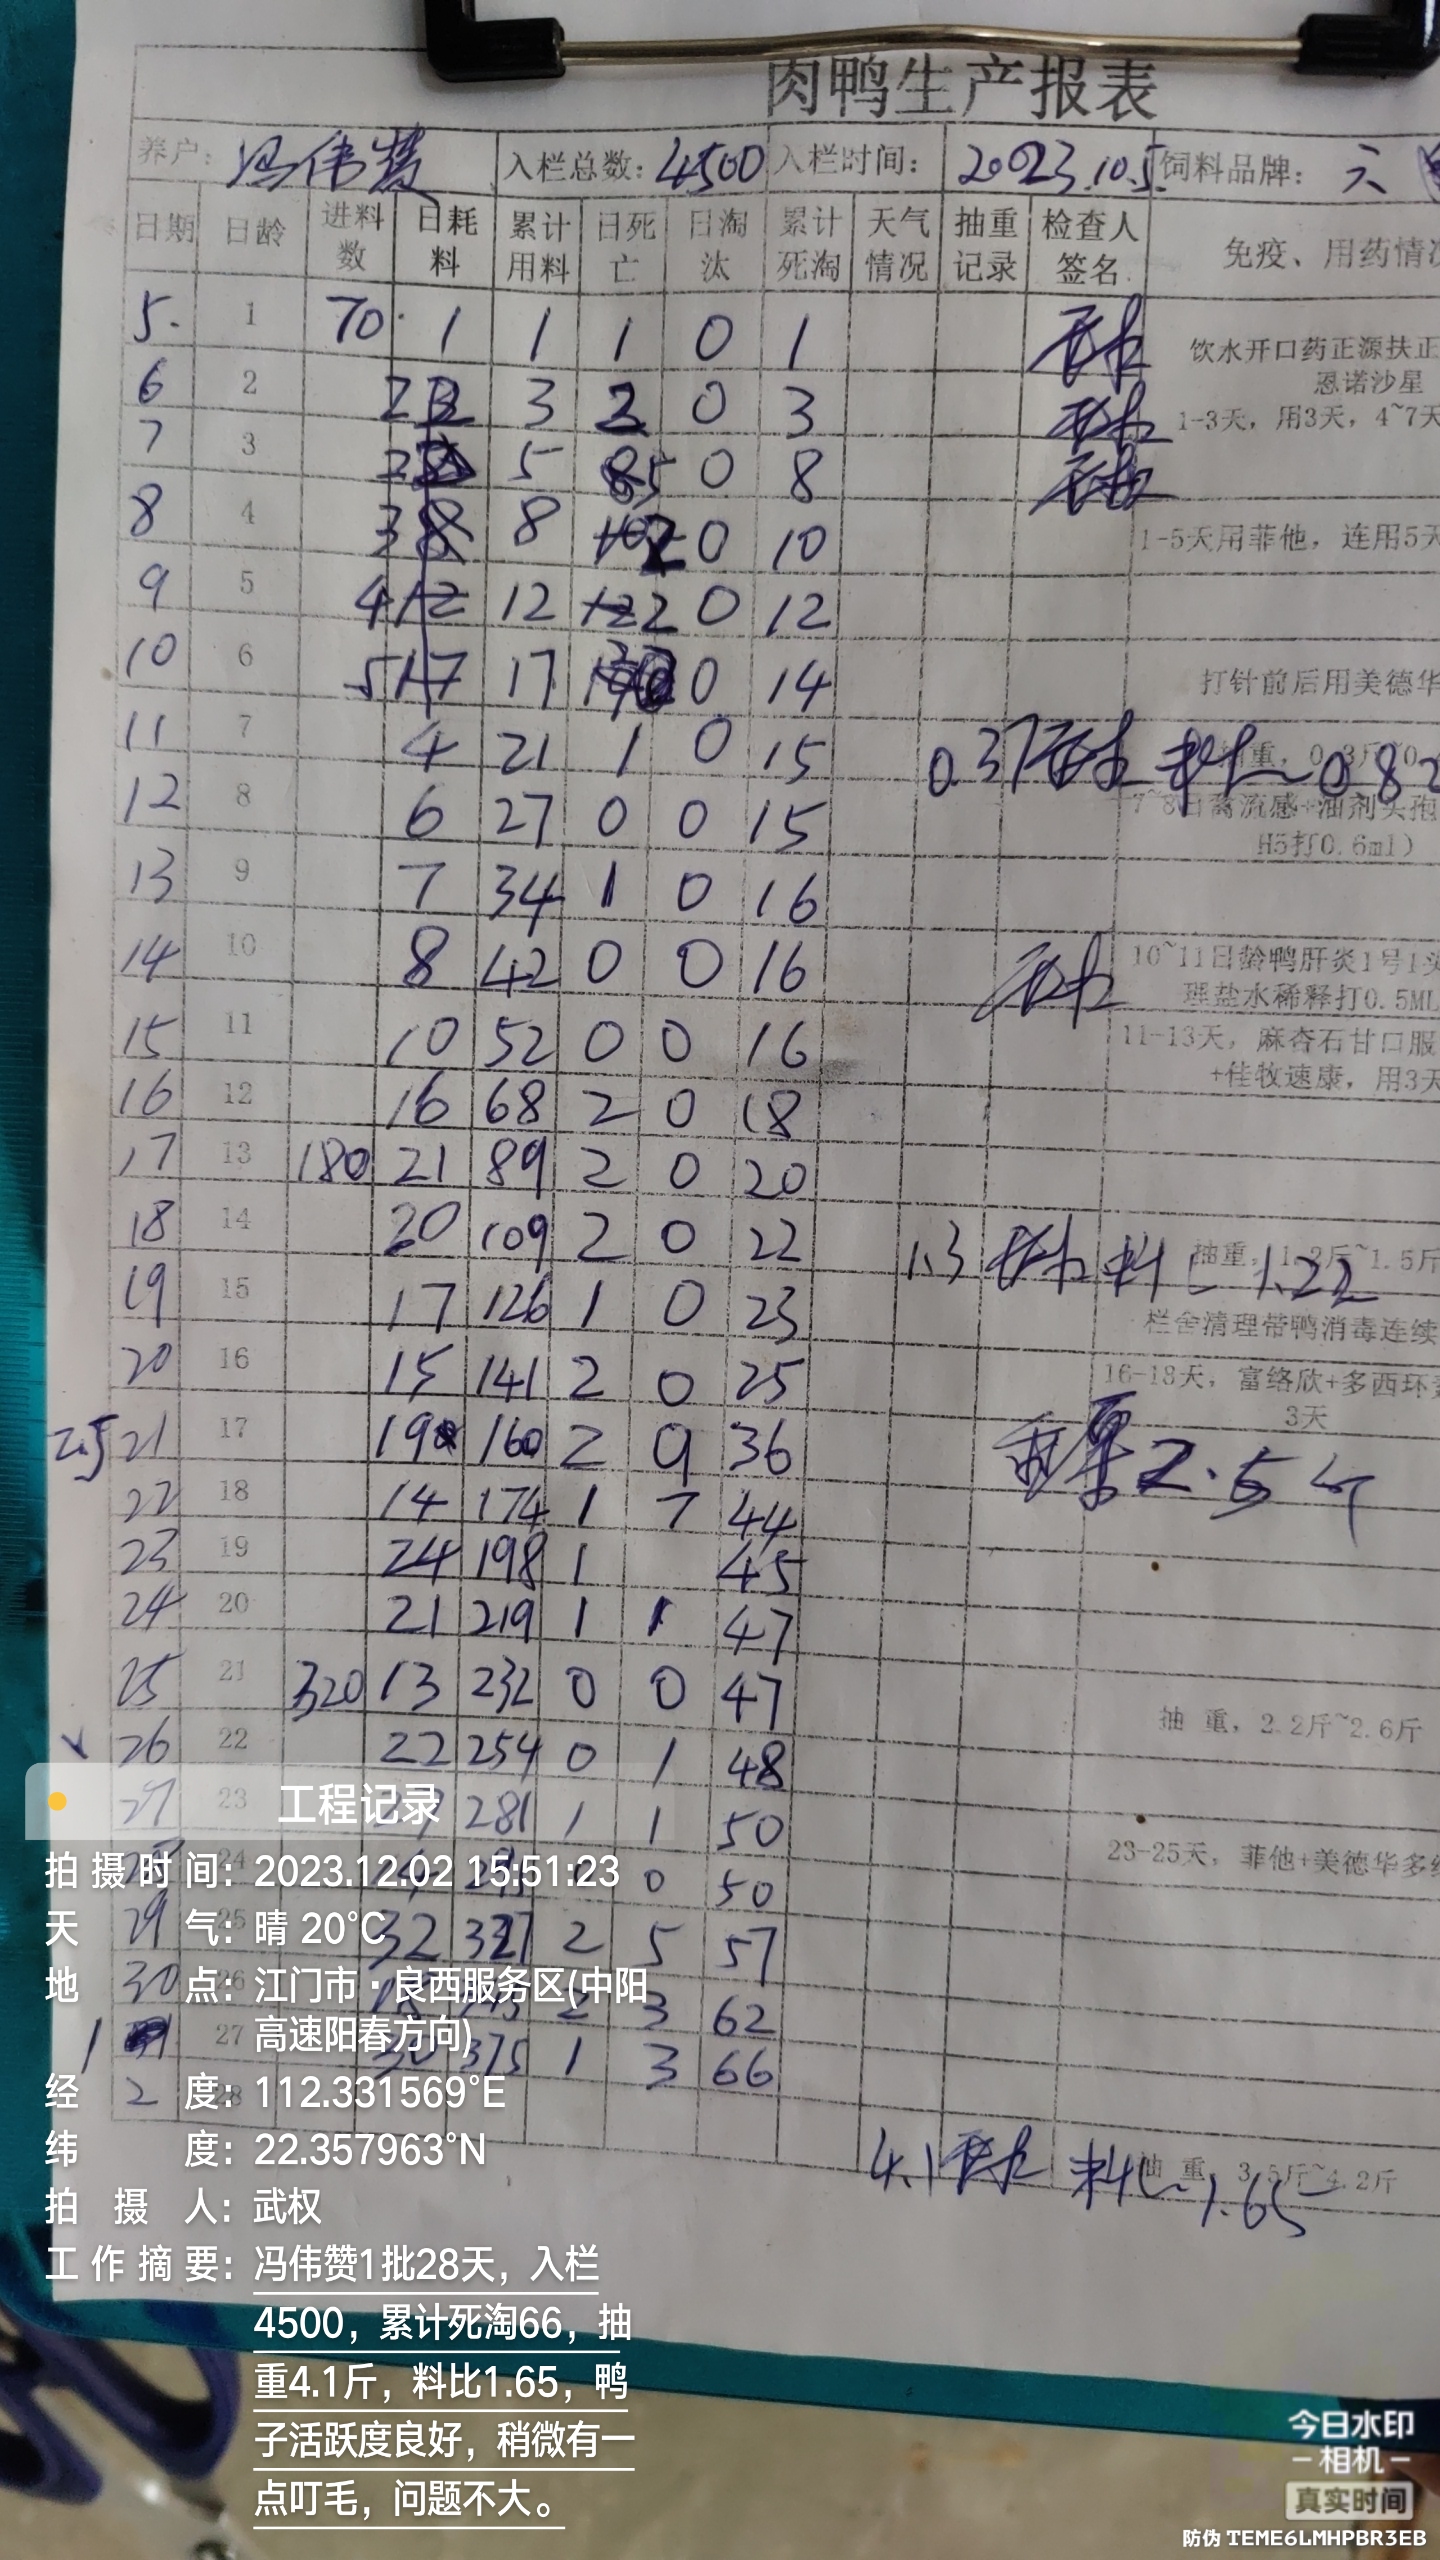 肉鸭生产报表
养户：冯伟赞 入栏总数：4500 入栏时间：2023.10.5 饲料品牌：六
日期 日龄 进料数 日耗料 累计用料 日死亡 日淘汰 累计死淘 天气情况 抽重记录 检查人签名 免疫、用药情况
5. 1 70 1 1 1 0 1
饮水开口药正源扶正
恩诺沙星
6 2 2 3 2 0 3
1-3天，用3天，4~7天
7 3 2 5 5 0 8
8 4 3 8 2 0 10 1-5天用菲他，连用5天
9 5 4 12 2 0 12
10 6 5 17 0 14 打针前后用美德华
11 7 4 21 1 0 15 0.37 料比0.82
12 8 6 27 0 0 15 7~8日禽流感+油剂头孢
H5打0.6ml)
13 9 7 34 1 0 16
14 10 8 42 0 0 16 10~11日龄鸭肝炎1号1头
理盐水稀释打0.5ML
15 11 10 52 0 0 16 11-13天，麻杏石甘口服
+佳牧速康，用3天
16 12 16 68 2 0 18
17 13 180 21 89 2 0 20
18 14 20 109 2 0 22 1.3 料比1.22 抽重，1.2斤~1.5斤
19 15 17 126 1 0 23 栏舍清理带鸭消毒连续
20 16 15 141 2 0 25 16-18天，富络欣+多西环素
3天
2.5 21 17 19 160 2 9 36 2.5斤
22 18 14 174 1 7 44
23 19 24 198 1 45
24 20 21 219 1 1 47
25 21 320 13 232 0 0 47 抽 重，2.2斤~2.6斤
26 22 22 254 0 1 48
27 23 281 1 1 50
24 0 50 23-25天，菲他+美德华多维
29 25 32 327 2 5 57
30 26 2 3 62
1 27 30 375 1 3 66
2 28
4.1 料比1.65 抽 重，3.5斤~4.2斤
工程记录
拍摄时间：2023.12.02 15:51:23
天气：晴 20°C
地点：江门市·良西服务区(中阳
高速阳春方向)
经度：112.331569°E
纬度：22.357963°N
拍摄人：武权
工作摘要：冯伟赞1批28天，入栏
4500，累计死淘66，抽
重4.1斤，料比1.65，鸭
子活跃度良好，稍微有一
点叮毛，问题不大。
今日水印
相机
真实时间
防伪 TEME6LMHPBR3EB